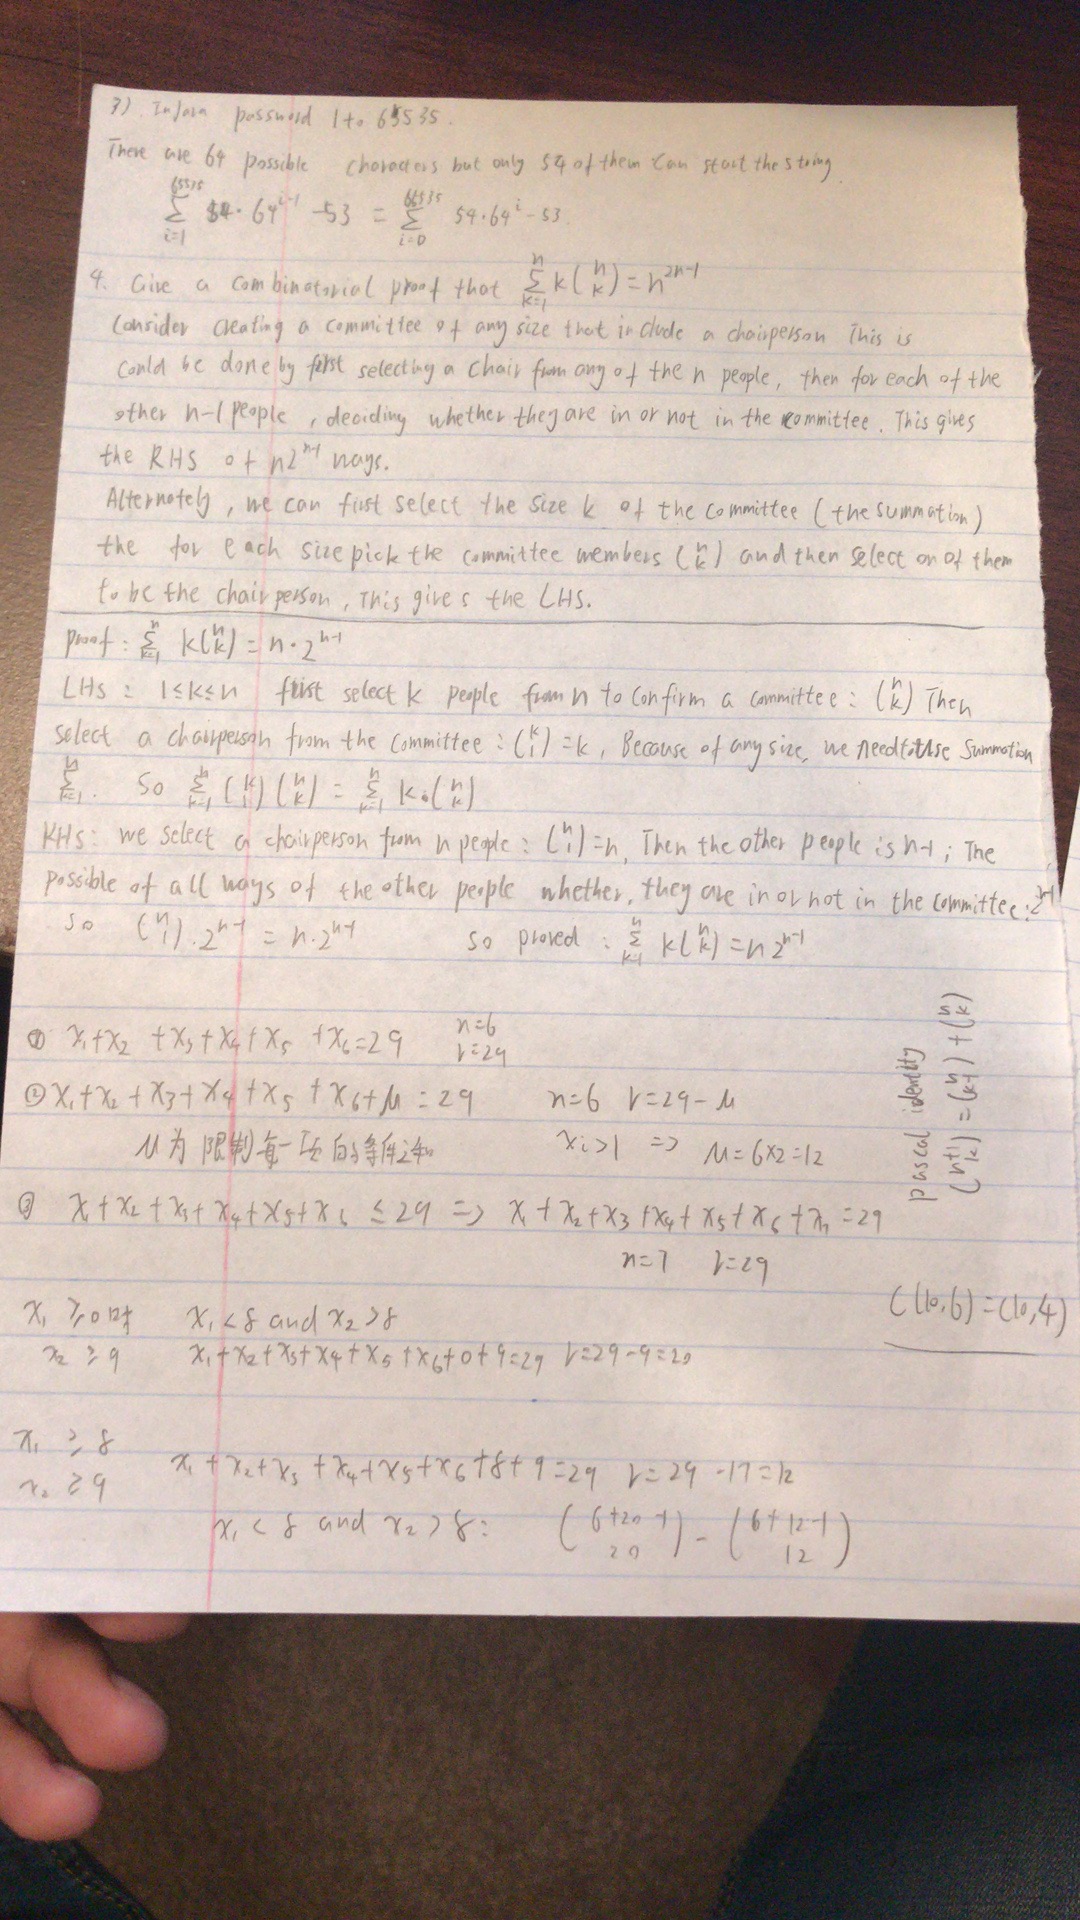 3) In Java password 1 to 65535.
There are 64 possible characters but only 54 of them can start the string
65535 ∑ i=1 54·64^{i-1} -53 = 65535 ∑ i=0 54·64^i -53.
4. Give a combinatorial proof that ∑_{k=1}^{n} k(n k) = n^{2n-1}
Consider creating a committee of any size that include a chairperson This is
could be done by first selecting a chair from any of the n people, then for each of the
other n-1 people, deciding whether they are in or not in the committee. This gives
the RHS of n2^{n-1} ways.
Alternately, we can first select the size k of the committee (the summation)
the for each size pick the committee members (n k) and then select on of them
to be the chairperson, This gives the LHS.
proof: ∑_{k=1}^{n} k(n k) = n·2^{n-1}
LHS: 1≤k≤n first select k people from n to confirm a committee: (n k) Then
select a chairperson from the committee: (k 1)=k, Because of any size, we need to use summation
∑_{k=1}^{n}. So ∑_{k=1}^{n} (k 1)(n k) = ∑_{k=1}^{n} k·(n k)
RHS: we select a chairperson from n people: (n 1)=n, Then the other people is n-1; The
possible of all ways of the other people whether, they are in or not in the committee: 2^{n-1}
so (n 1)·2^{n-1} = n·2^{n-1} so proved: ∑_{k=1}^{n} k(n k) = n2^{n-1}
① x₁+x₂+x₃+x₄+x₅+x₆=29 n=6
r=29
② x₁+x₂+x₃+x₄+x₅+x₆+μ=29 n=6 r=29-μ
μ为限制每一项的条件之和 xᵢ>1 => μ=6×2=12
pascal identity
(n+1 k) = (n k-1) + (n k)
③ x₁+x₂+x₃+x₄+x₅+x₆≤29 => x₁+x₂+x₃+x₄+x₅+x₆+x₇=29
n=7 r=29
C(10,6)=(10,4)
x₁≥0时 x₁<8 and x₂>8
x₂≥9 x₁+x₂+x₃+x₄+x₅+x₆+0+9=29 r=29-9=20
x₁≥8
x₂≥9 x₁+x₂+x₃+x₄+x₅+x₆+8+9=29 r=29-17=12
x₁<8 and x₂>8: (6+20-1 20) - (6+12-1 12)